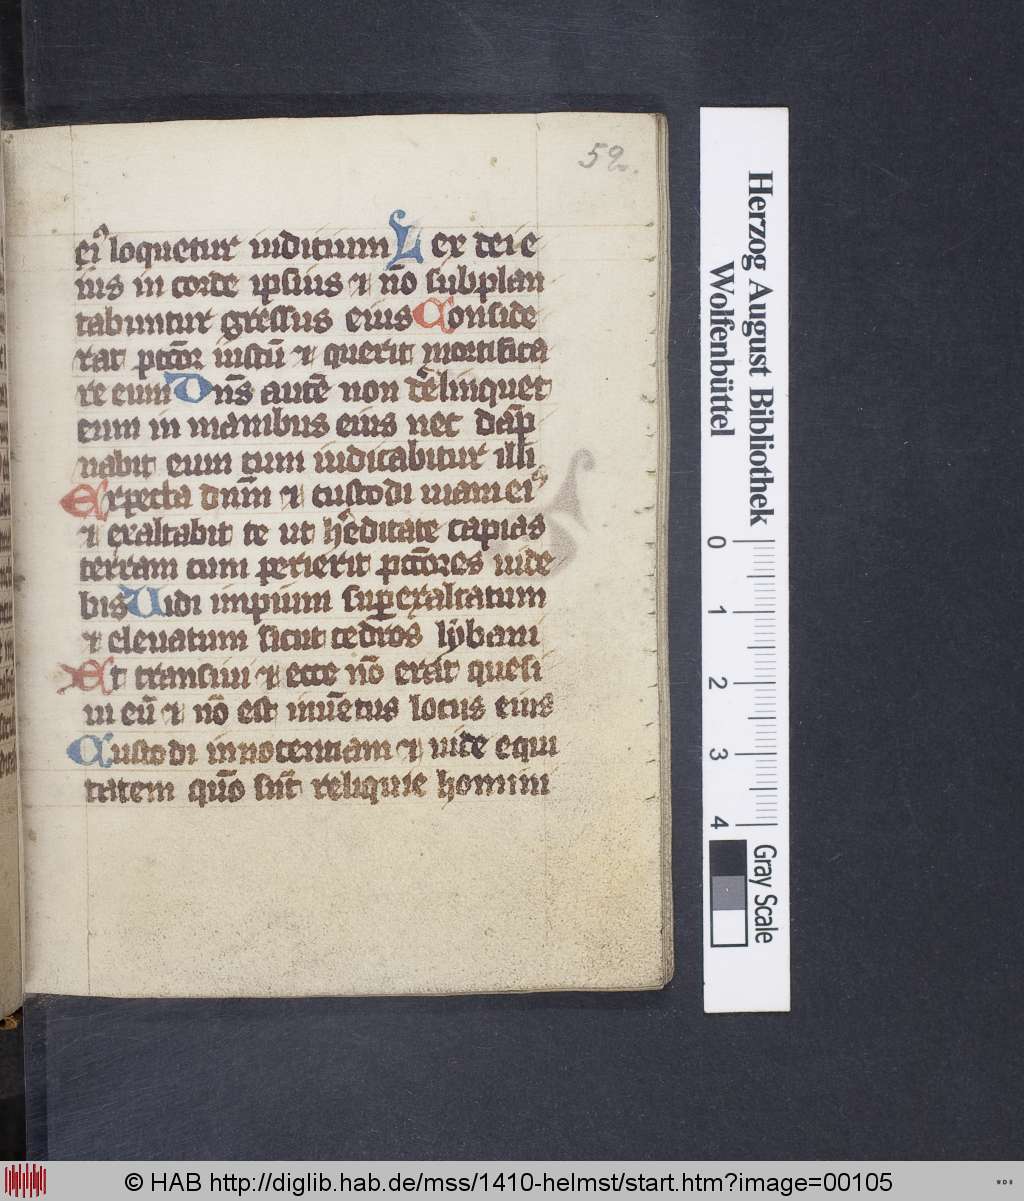 52.
eiꝰ loquetur iudicium Lex dei e
ius in corde ipsius ⁊ nō subplan
tabuntur gressus eius Conside
rat pctōr iustū ⁊ querit mortifica
re eum Dn̄s autē non derelinquet
eum in manibus eius nec dāp
nabit eum cum iudicabitur illi
Expecta dnm̄ ⁊ custodi uiam eiꝰ
⁊ exaltabit te ut heditate capias
terram cum perierit pctōres uide
bis Uidi impium suꝑexaltatum
⁊ eleuatum sicut cedros lẏbani
Et transiui ⁊ ecce nō erat quesi
ui eū ⁊ nō est inuētus locus eius
Custodi innocentiam ⁊ uide equi
tatem qūo sūt reliquie homini
Herzog August Bibliothek
Wolfenbüttel
0 1 2 3 4
Gray Scale
© HAB http://diglib.hab.de/mss/1410-helmst/start.htm?image=00105